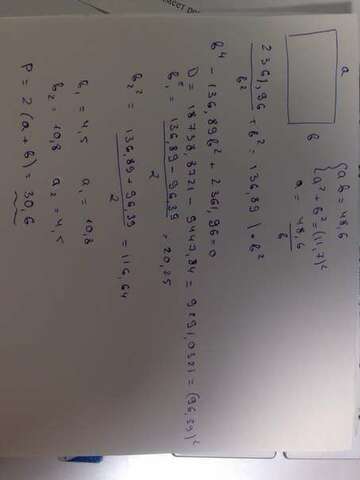 a
b
ab = 48,6
a² + b² = (11,7)²
a = 48,6 / b
2361,96 / b² + b² = 136,89 | · b²
b⁴ - 136,89b² + 2361,96 = 0
D = 18738,8721 - 9447,84 = 9291,0321 = (96,39)²
b₁² = (136,89 - 96,39) / 2 = 20,25
b₂² = (136,89 + 96,39) / 2 = 116,64
b₁ = 4,5 a₁ = 10,8
b₂ = 10,8 a₂ = 4,5
P = 2(a + b) = 30,6